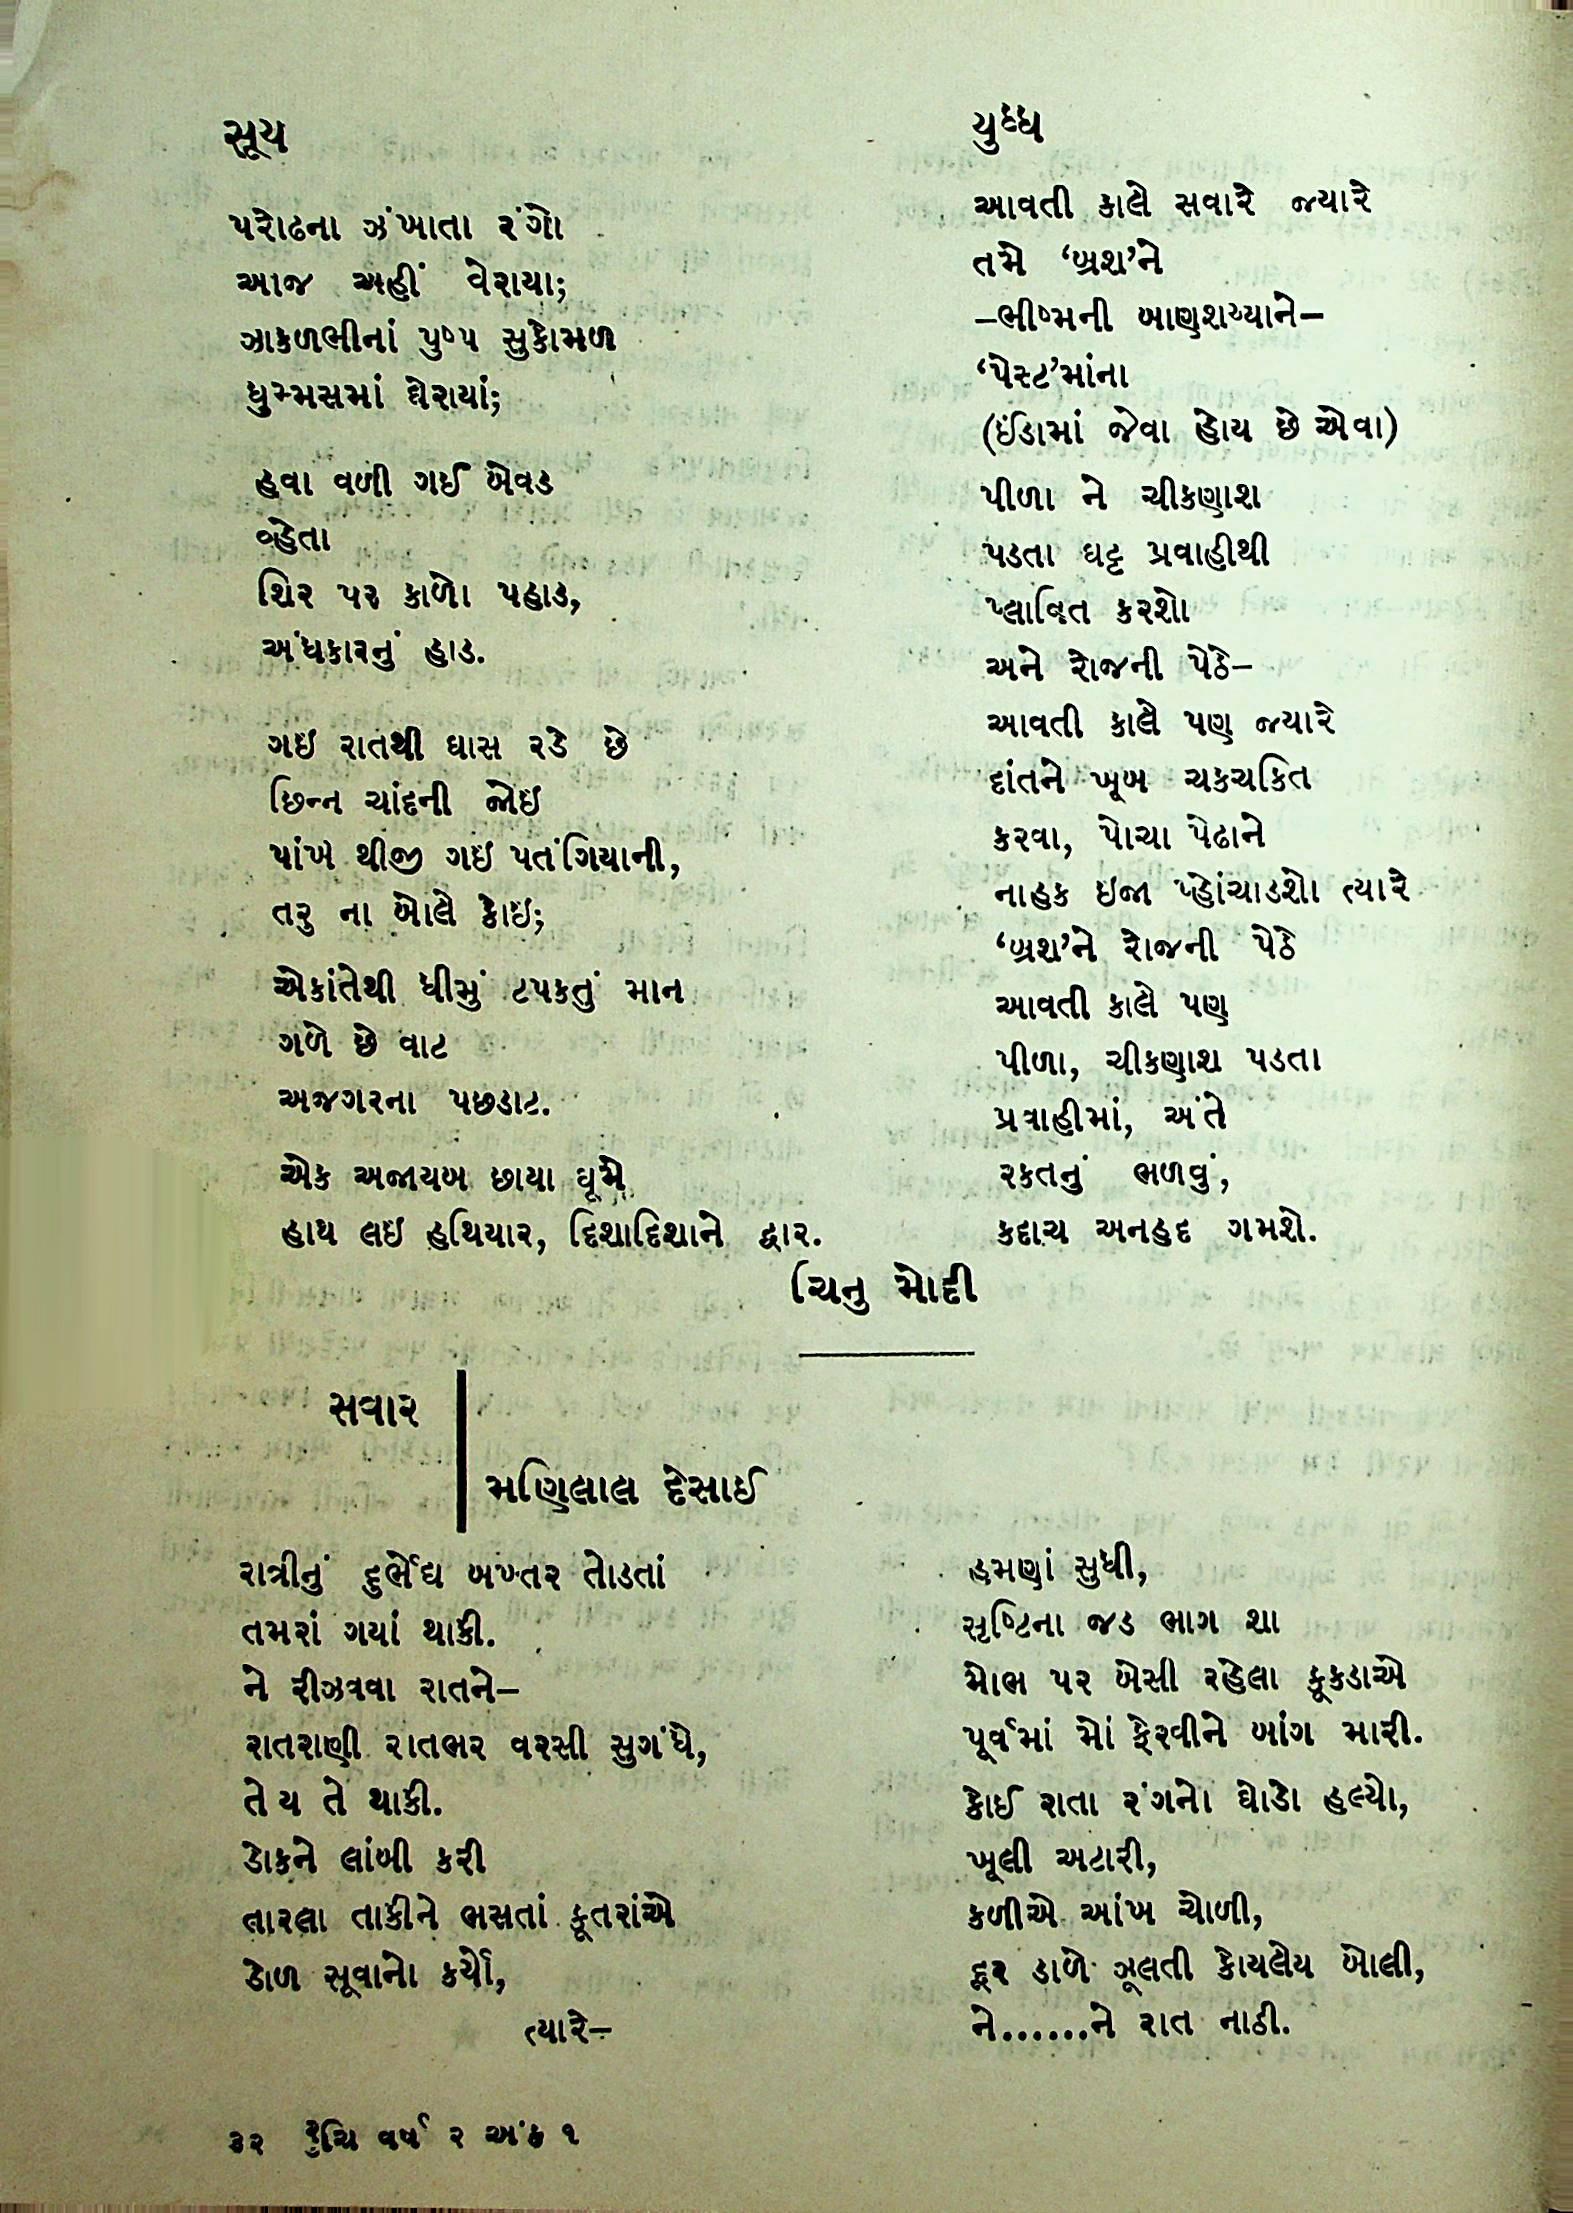 સૂય
પરોઢના ઝંખાતા રંગો
આજ અહીં વેરાયા;
ઝાકળભીનાં પુષ્પ સુકોમળ
ધુમ્મસમાં ઘેરાયાં;
હવા વળી ગઈ બેવડ
વ્હેતા
શિર પર કાળો પહાડ,
અંધકારનું હાડ.
ગઇ રાતથી ઘાસ રડે છે
છિન્ન ચાંદની જોઇ
પાંખે થીજી ગઇ પતંગિયાની,
તરુ ના બોલે કોઇ;
એકાંતેથી ધીમું ટપકતું માન
ગળે છે વાટ
અજગરના પછડાટ.
એક અજાયબ છાયા ઘૂમે
હાથ લઇ હથિયાર, દિશાદિશાને દ્વાર.
યુધ્ધ
આવતી કાલે સવારે જ્યારે
તમે ‘બ્રશ’ને
–ભીષ્મની બાણશય્યાને–
‘પેસ્ટ’માંના
(ઈંડામાં જેવા હોય છે એવા)
પીળા ને ચીકણાશ
પડતા ઘટ્ટ પ્રવાહીથી
પ્લાવિત કરશો
અને રોજની પેઠે–
આવતી કાલે પણ જ્યારે
દાંતને ખૂબ ચકચકિત
કરવા, પોચા પેઢાને
નાહક ઇજા પ્હોંચાડશો ત્યારે
‘બ્રશ’ને રોજની પેઠે
આવતી કાલે પણ
પીળા, ચીકણાશ પડતા
પ્રવાહીમાં, અંતે
રકતનું ભળવું,
કદાચ અનહદ ગમશે.
ચિનુ મોદી
સવાર
મણિલાલ દેસાઈ
રાત્રીનું દુર્ભેદ્ય બખ્તર તોડતાં
તમરાં ગયાં થાકી.
ને રીઝવવા રાતને–
રાતરાણી રાતભર વરસી સુગંધે,
તે ય તે થાકી.
ડોકને લાંબી કરી
તારલા તાકીને ભસતાં કૂતરાંએ
ડોળ સૂવાનો કર્યો,
ત્યારે–
હમણાં સુધી,
સૃષ્ટિના જડ ભાગ શા
મોભ પર બેસી રહેલા કૂકડાએ
પૂર્વમાં મોં ફેરવીને બાંગ મારી.
કોઈ રાતા રંગનો ઘોડો હણ્યો,
ખૂલી અટારી,
કળીએ આંખ ચોળી,
દૂર ડાળે ઝૂલતી કોયલેય બોલી,
ને......ને રાત નાઠી.
૩૨ રુચિ વર્ષ ૨ અંક ૧